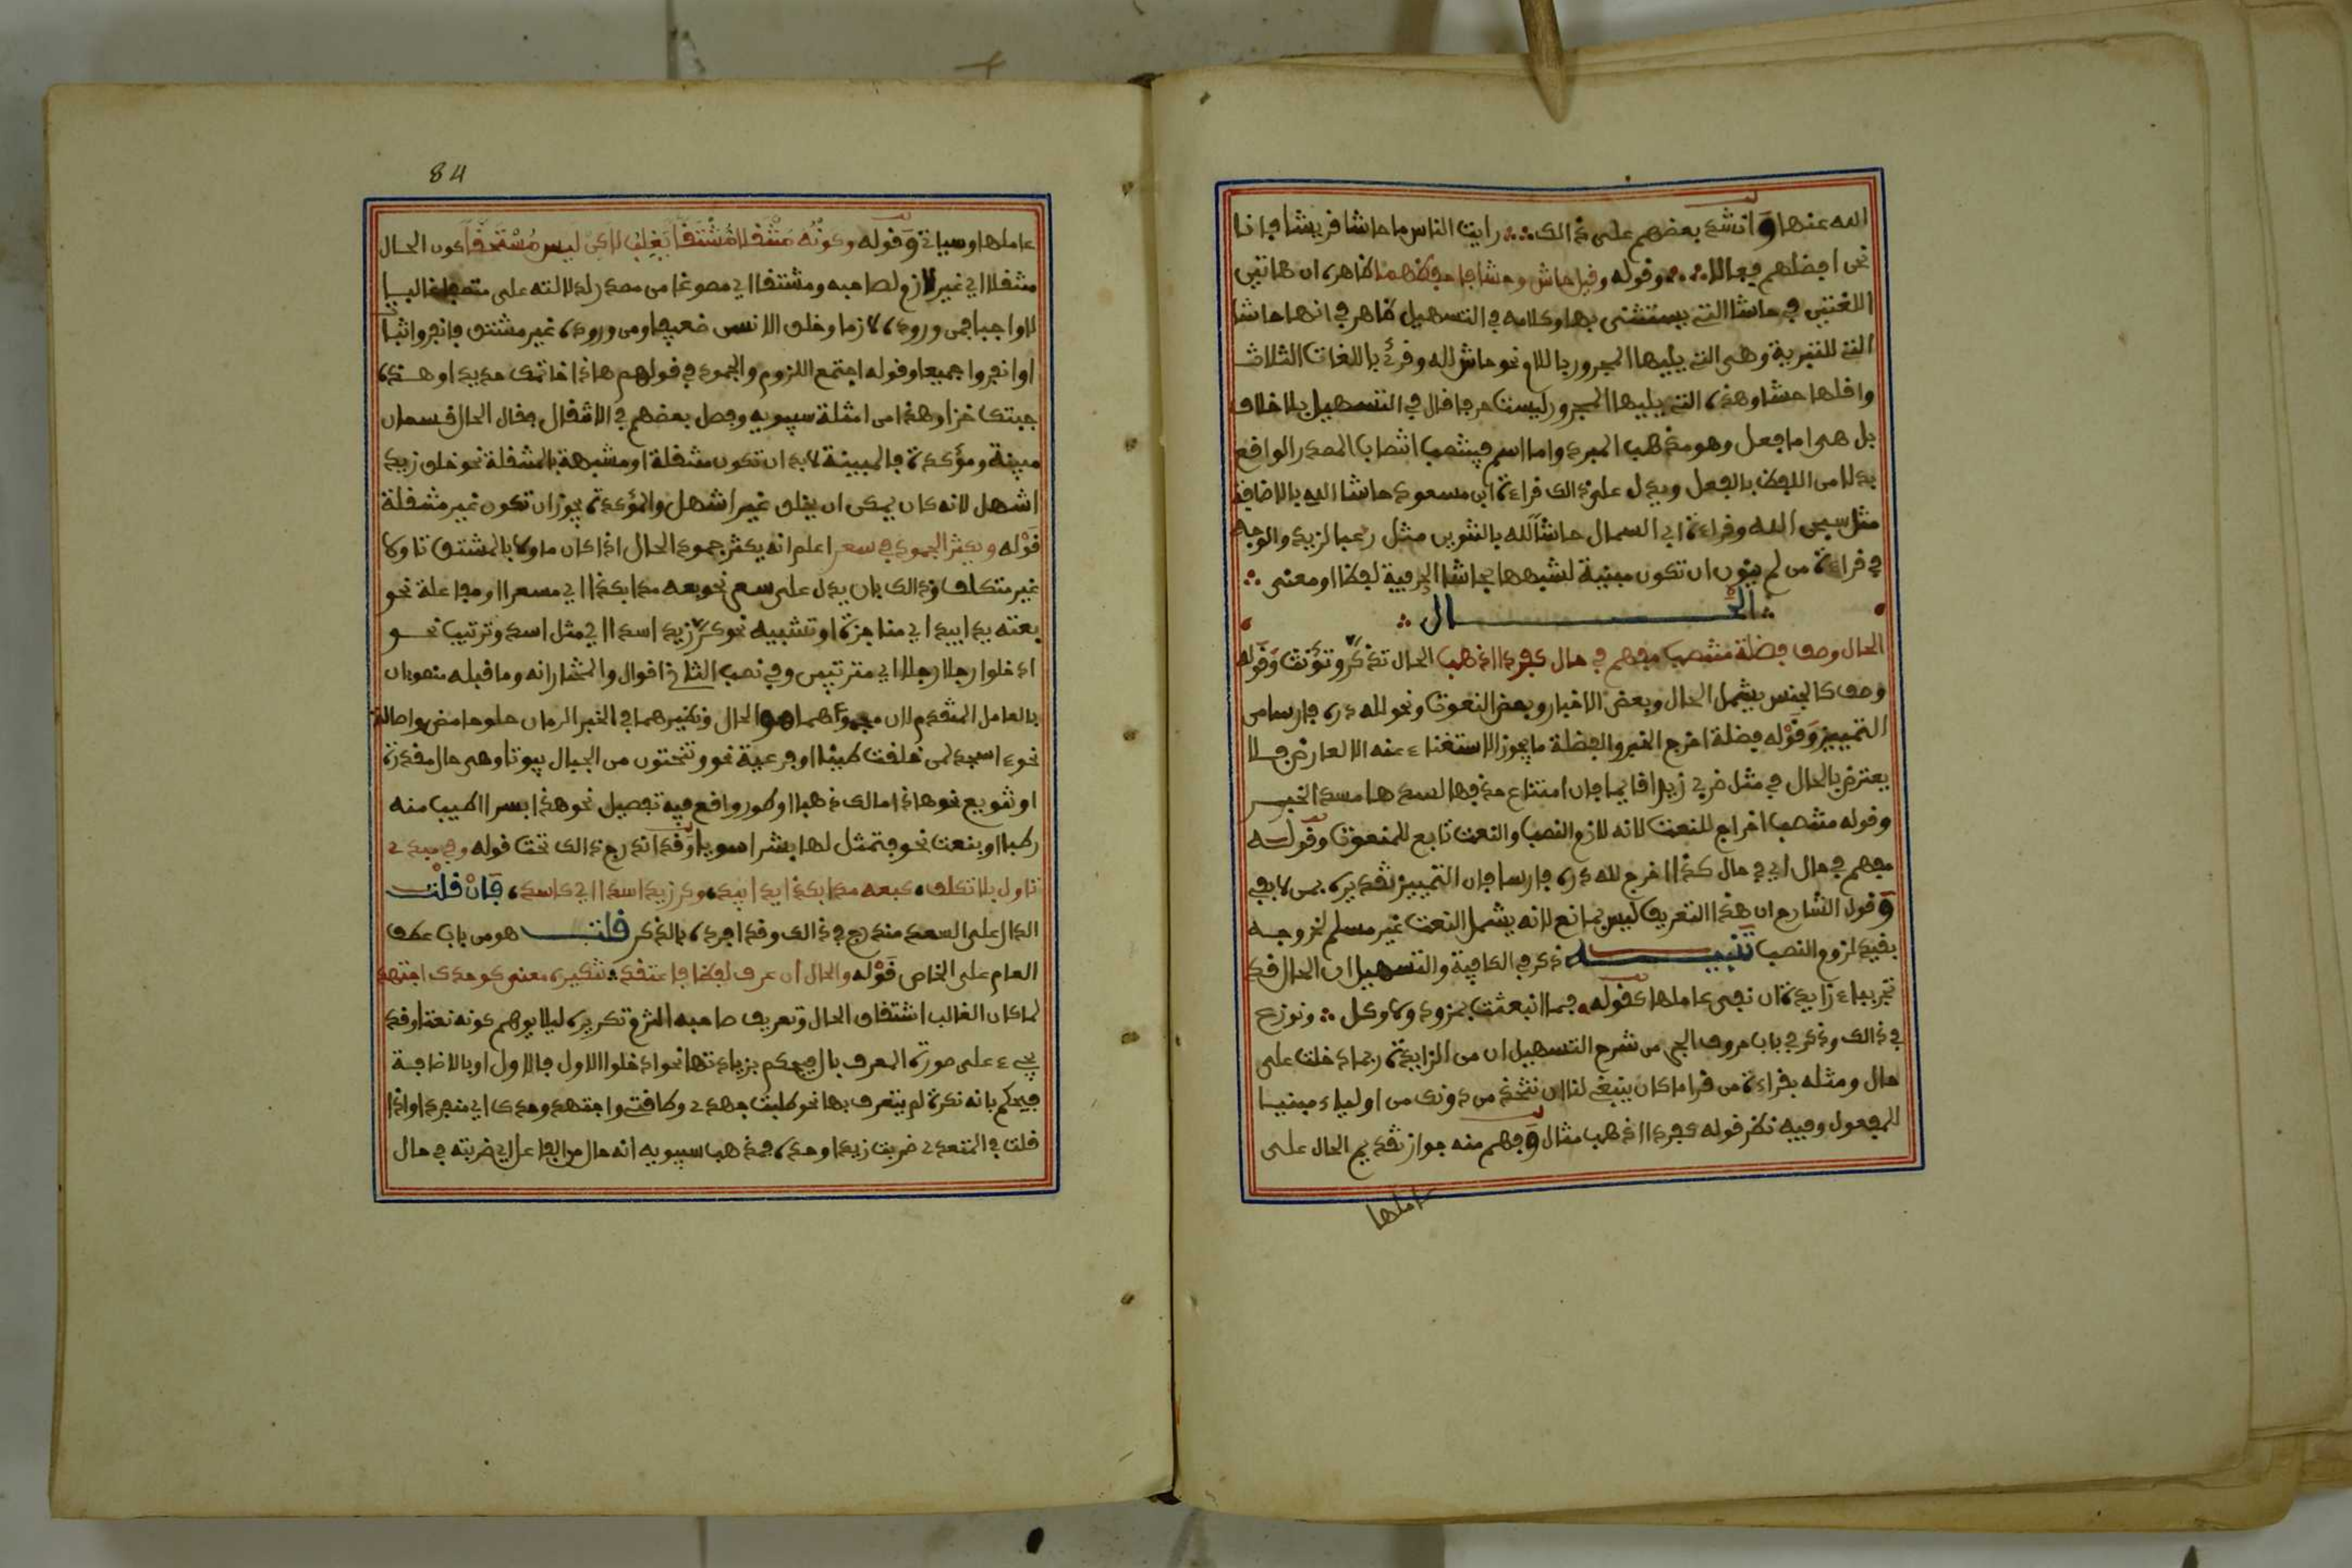 الله عنها وانشد بعضهم على ذالك رايت الناس ما حاشا قريشا فانا
نحن افضلهم فعالا وقوله وقيل حاش وحشا فاحفظهما ظاهره ان هاتين
اللغتين في حاشا التي يستثنى بها وكلامه في التسهيل ظاهر في انها حاشا
التي للتنزيه وهي التي يليها المجرور باللام نحو حاش لله وقرئ باللغات الثلاث
واقلها حشا وهذه التي يليها المجرور ليست حرفا قال في التسهيل بلا خلاف
بل هي اما فعل وهو مذهب المبرد واما اسم فينتصب انتصاب المصدر الواقع
بدلا من اللفظ بالفعل ويدل على ذالك قراءة ابن مسعود حاشا الله بالاضافة
مثل سبحن الله وقراءة ابي السمال حاشا لله بالتنوين مثل رعيا لزيد والوجه
في قراءة من لم ينون ان تكون مبنية لشبهها بحاشا الحرفية لفظا ومعنى
الحال
الحال وصف فضلة منتصب مفهم في حال كفردا اذهب الحال تذكر وتؤنث وقوله
وصف كالجنس يشمل الحال وبعض الاخبار وبعض النعوت ونحو لله دره فارسا من
التمييز وقوله فضلة اخرج الخبر والفضلة ما يجوز الاستغناء عنه الا لعارض فلا
يعترض بالحال في مثل ضربي زيدا قايما فان امتناع حذفها لسدها مسد الخبر
وقوله منتصب اخراج للنعت لانه لازم النصب والنعت تابع للمنعوت وقوله
مفهم في حال اي في حال كذا اخرج لله دره فارسا فان التمييز تقديره بمن لا بفي
وقول الشارح ان هذا التعريف ليس بمانع لانه يشمل النعت غير مسلم لخروجه
بقيد لزوم النصب تنبيه ذكر في الكافية والتسهيل ان الحال قد
تجر بباء زايدة ان نفي عاملها كقوله فما انبعثت بمزود ولا وكل ونوزع
في ذالك وذكر في باب حروف الجر من شرح التسهيل ان من الزايدة ربما دخلت على
حال ومثله بقراءة من قرا ما كان ينبغي لنا ان نتخذ من دونك من اولياء مبنيا
للمفعول وفيه نظر قوله كفردا اذهب مثال وفهم منه جواز تقديم الحال على
عاملها
84
عاملها وسياتي وقوله وكونه منتقلا مشتقا يغلب لاكن ليس مستحقا كون الحال
منتقلا اي غير لازم لصاحبه ومشتقا اي مصوغا من مصدر لدلالته على متصف غالب
لا واجب فمن وروده لازما وخلق الانسن ضعيفا ومن وروده غير مشتق فانفروا ثبات
او انفروا جميعا وقوله اجتمع اللزوم والجمود في قولهم هاذا خاتمك حديدا وهذه
جبتك خزا وهذا من امثلة سيبويه وفصل بعضهم في الانتقال فقال الحال قسمان
مبينة ومؤكدة فالمبينة لا بد ان تكون منتقلة او مشبهة بالمنتقلة نحو خلق زيد
اشهل لانه كان يمكن ان يخلق غير اشهل والمؤكدة يجوز ان تكون غير منتقلة
قوله ويكثر الجمود في سعر اعلم انه يكثر جمود الحال اذا كان ماولا بالمشتق تاولا
غير متكلف وذالك بان يدل على سعر نحو بعه مدا بكذا اي مسعرا او مفاعلة نحو
بعته يدا بيد اي مناجزة او تشبيه نحو كر زيد اسدا اي مثل اسد وترتيب نحو
ادخلوا رجلا رجلا اي مترتبين وفي نصب الثاني اقوال والمختار انه وما قبله منصوبان
بالعامل المتقدم لان مجموعهما هو الحال ونظيرهما في الخبر الرمان حلو حامض واصالة
نحو ءاسجد لمن خلقت طينا او فرعية نحو وتنحتون من الجبال بيوتا وهي حال مقدرة
او تنويع نحو هاذا مالك ذهبا او طور واقع فيه تفصيل نحو هذا بسرا اطيب منه
رطبا او بنعت نحو فتمثل لها بشرا سويا وقد اندرج ذالك تحت قوله وفي مبدي
تاول بلا تكلف كبعه مدا بكذا يدا بيد وكر زيد اسدا اي كاسد فان قلت
الدال على السعر مندرج في ذالك وقد افرده بالذكر قلت هو من باب عطف
العام على الخاص قوله والحال ان عرف لفظا فاعتقد تنكيره معنى كوحدك اجتهد
لما كان الغالب اشتقاق الحال وتعريف صاحبه التزم تنكيره ليلا يوهم كونه نعتا وقد
يجيء على صورة المعرف بال فيحكم بزيادتها نحو ادخلوا الاول فالاول او بالاضافة
فيحكم بانه نكرة لم يتعرف بها نحو طلبته جهدي وطاقتي واجتهد وحدك اي منفردا واذا
قلت في المتعدي ضربت زيدا وحده فمذهب سيبويه انه حال من الفاعل اي ضربته في حال